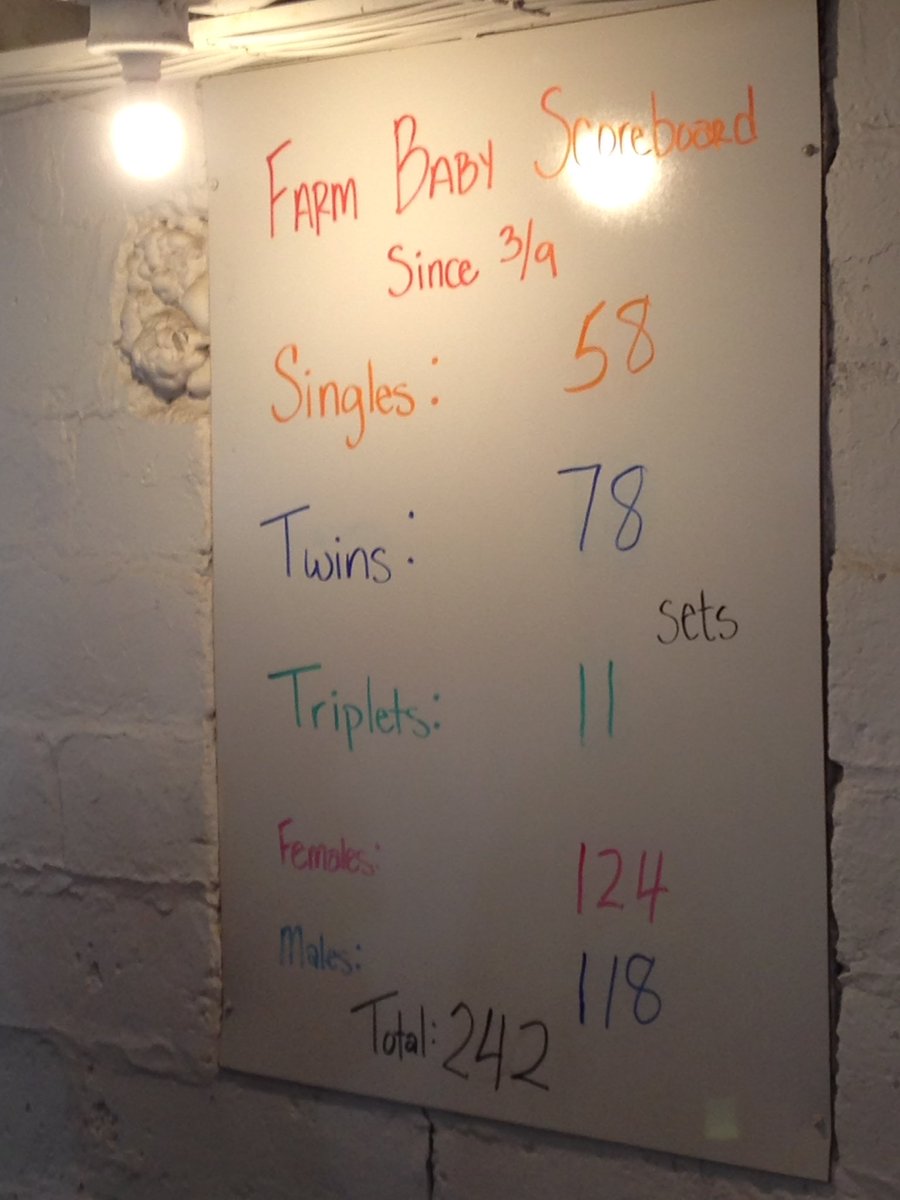 FARM BABY Scoreboard
Since 3/9
Singles: 58
Twins: 78
sets
Triplets: 11
Females: 124
Males: 118
Total: 242